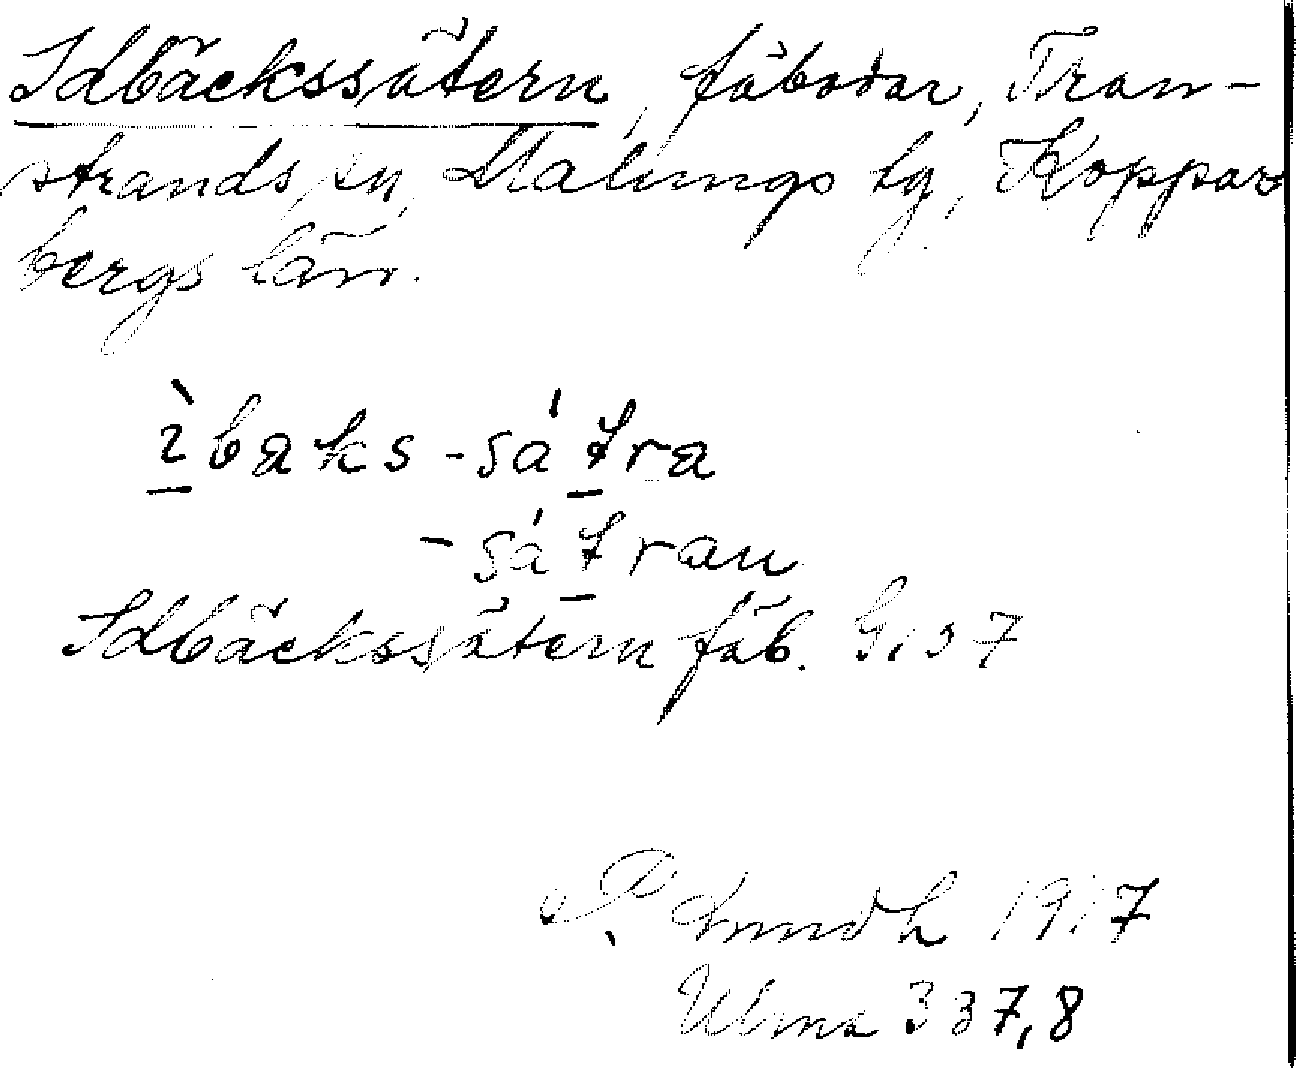 Idbäckssätern, fäbodar, Tran-
strands sn, Malungs tg, Koppar
bergs län.
ìbaks-sá´tra
-sá´tran
Idbäckssätern fäb. G, 37
P. Lundh 1917
Ulma 337,8